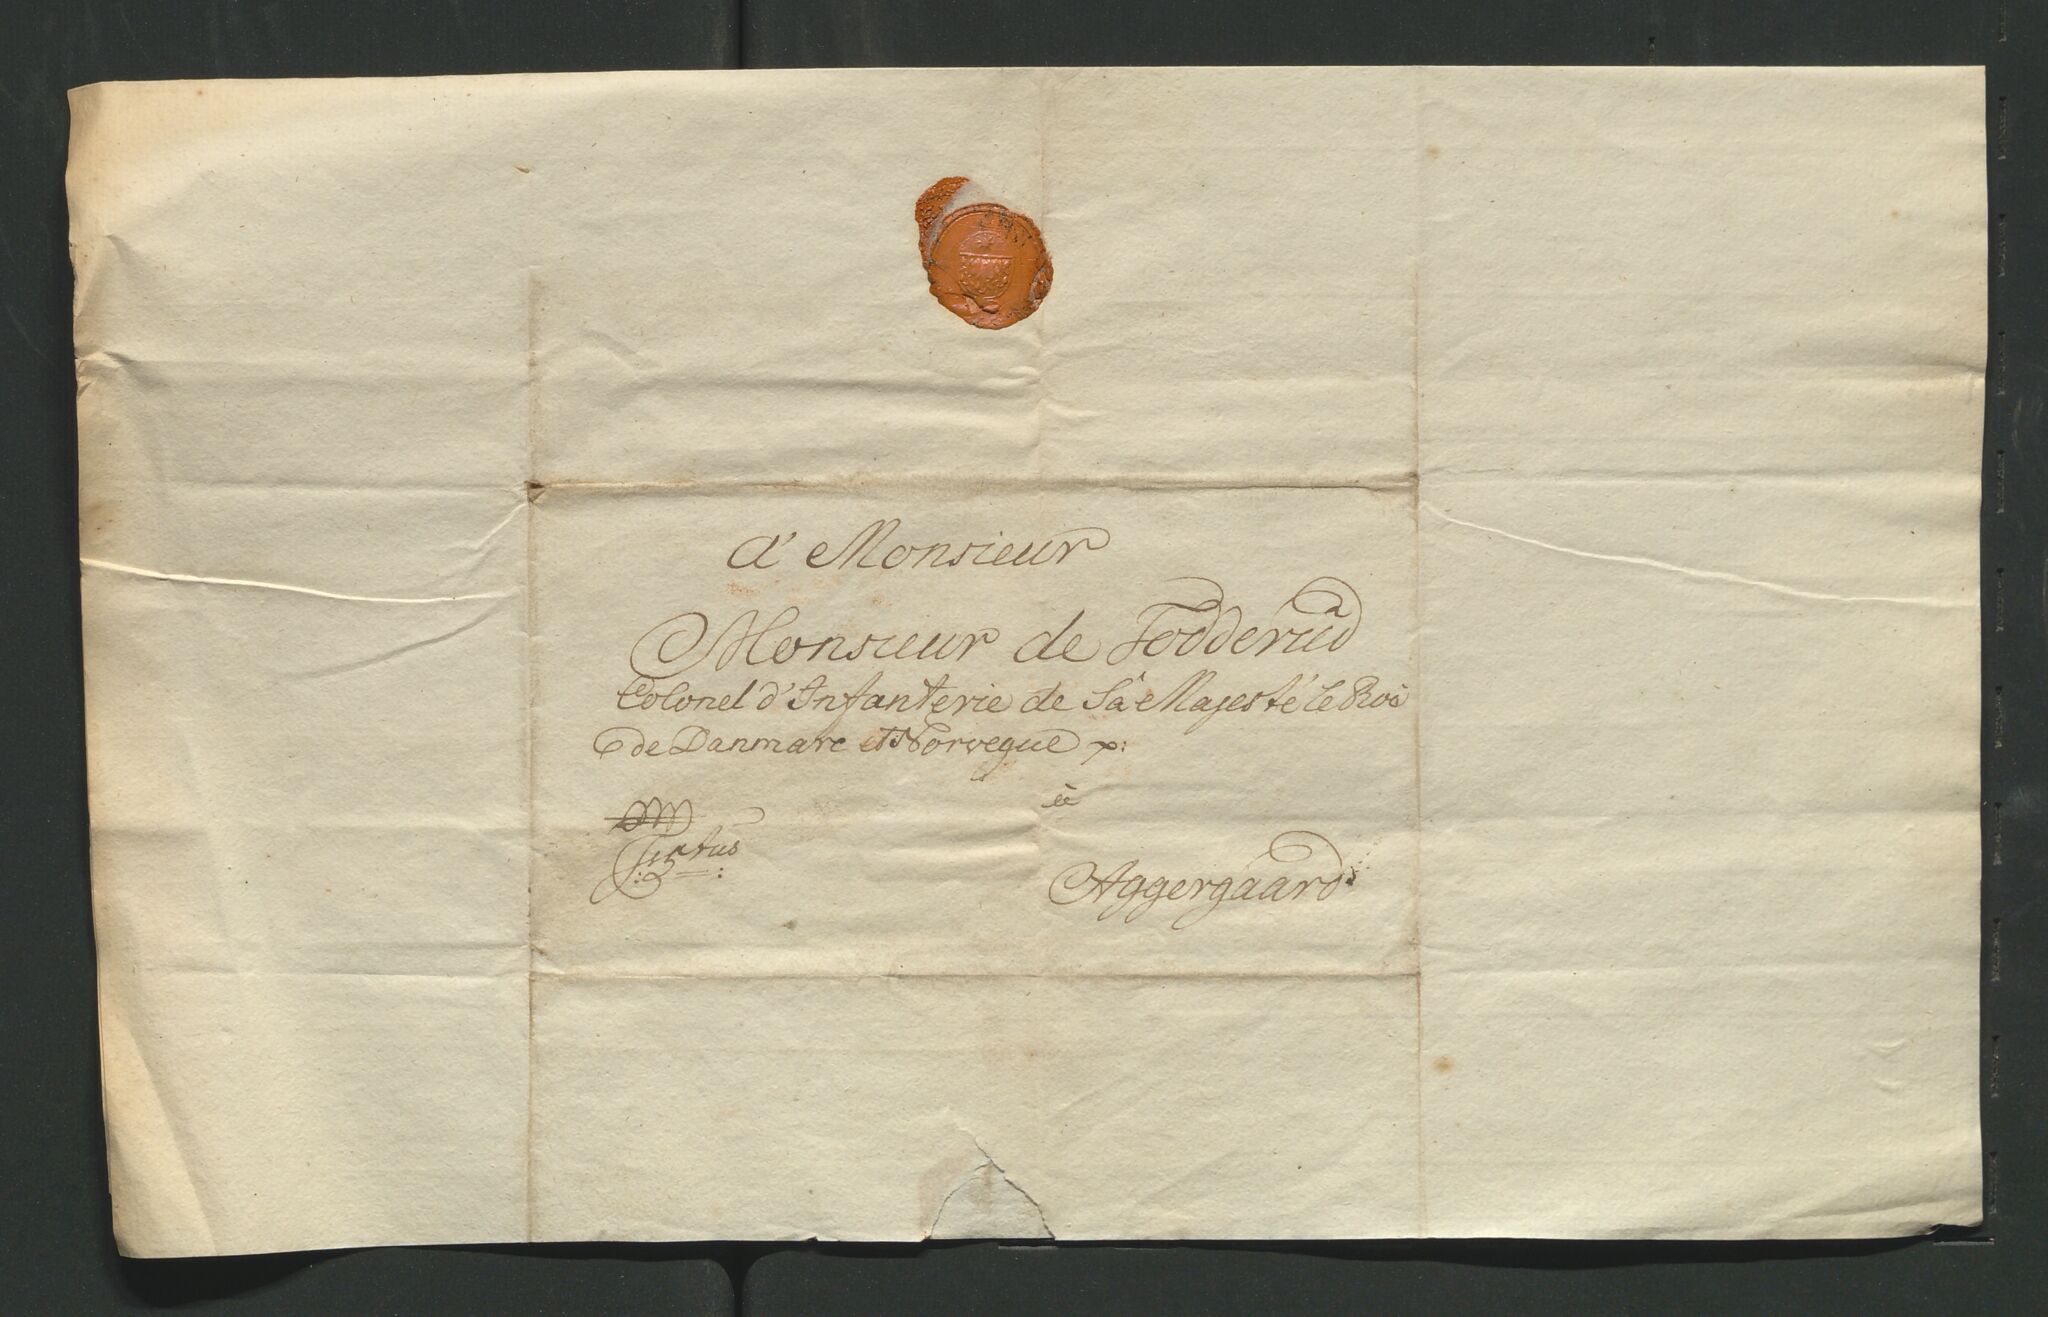 a' Monsieur
Monsieur de Todderud
Colonel d'Infanterie de Sa Majesté le Roi
de Danmarc et Norvegue p:
à
Aggergaard